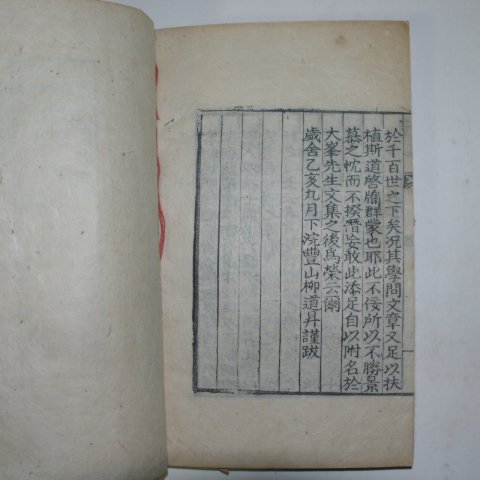 於千百世之下矣况其學問文章又足以扶
植斯道啓牖群蒙也耶此不佞所以不勝景
慕之忱而不揆僭妄敢此添足自以附名於
大峯先生文集之後爲榮云爾
歲舍乙亥九月下浣豐山柳道昇謹跋